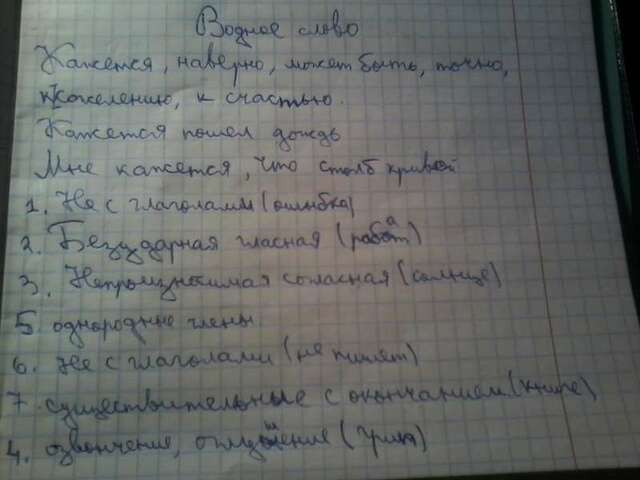 Водное слово
Кажется, наверно, может быть, точно,
к сожелению, к счастью.
Кажется пошел дождь
Мне кажется, что столб кривой
1. Не с глаголами (ошибка)
2. Безударная гласная (работа)
3. Непроизносимая согласная (солнце)
5. однородные члены
6. Не с глаголами (не пишет)
7. существительные с окончанием (книге)
4. озвончение, оглушение